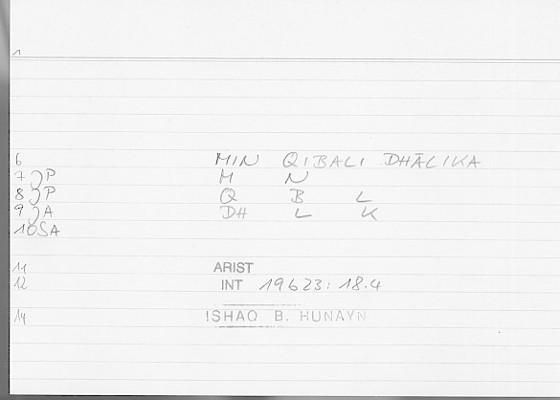 1
6 MIN QIBALI DHĀLIKA
7 )P M N
8 )P Q B L
9 )A DH L K
10 SA
11 ARIST
12 INT 19623: 18.4
14 ISHAQ B. HUNAYN